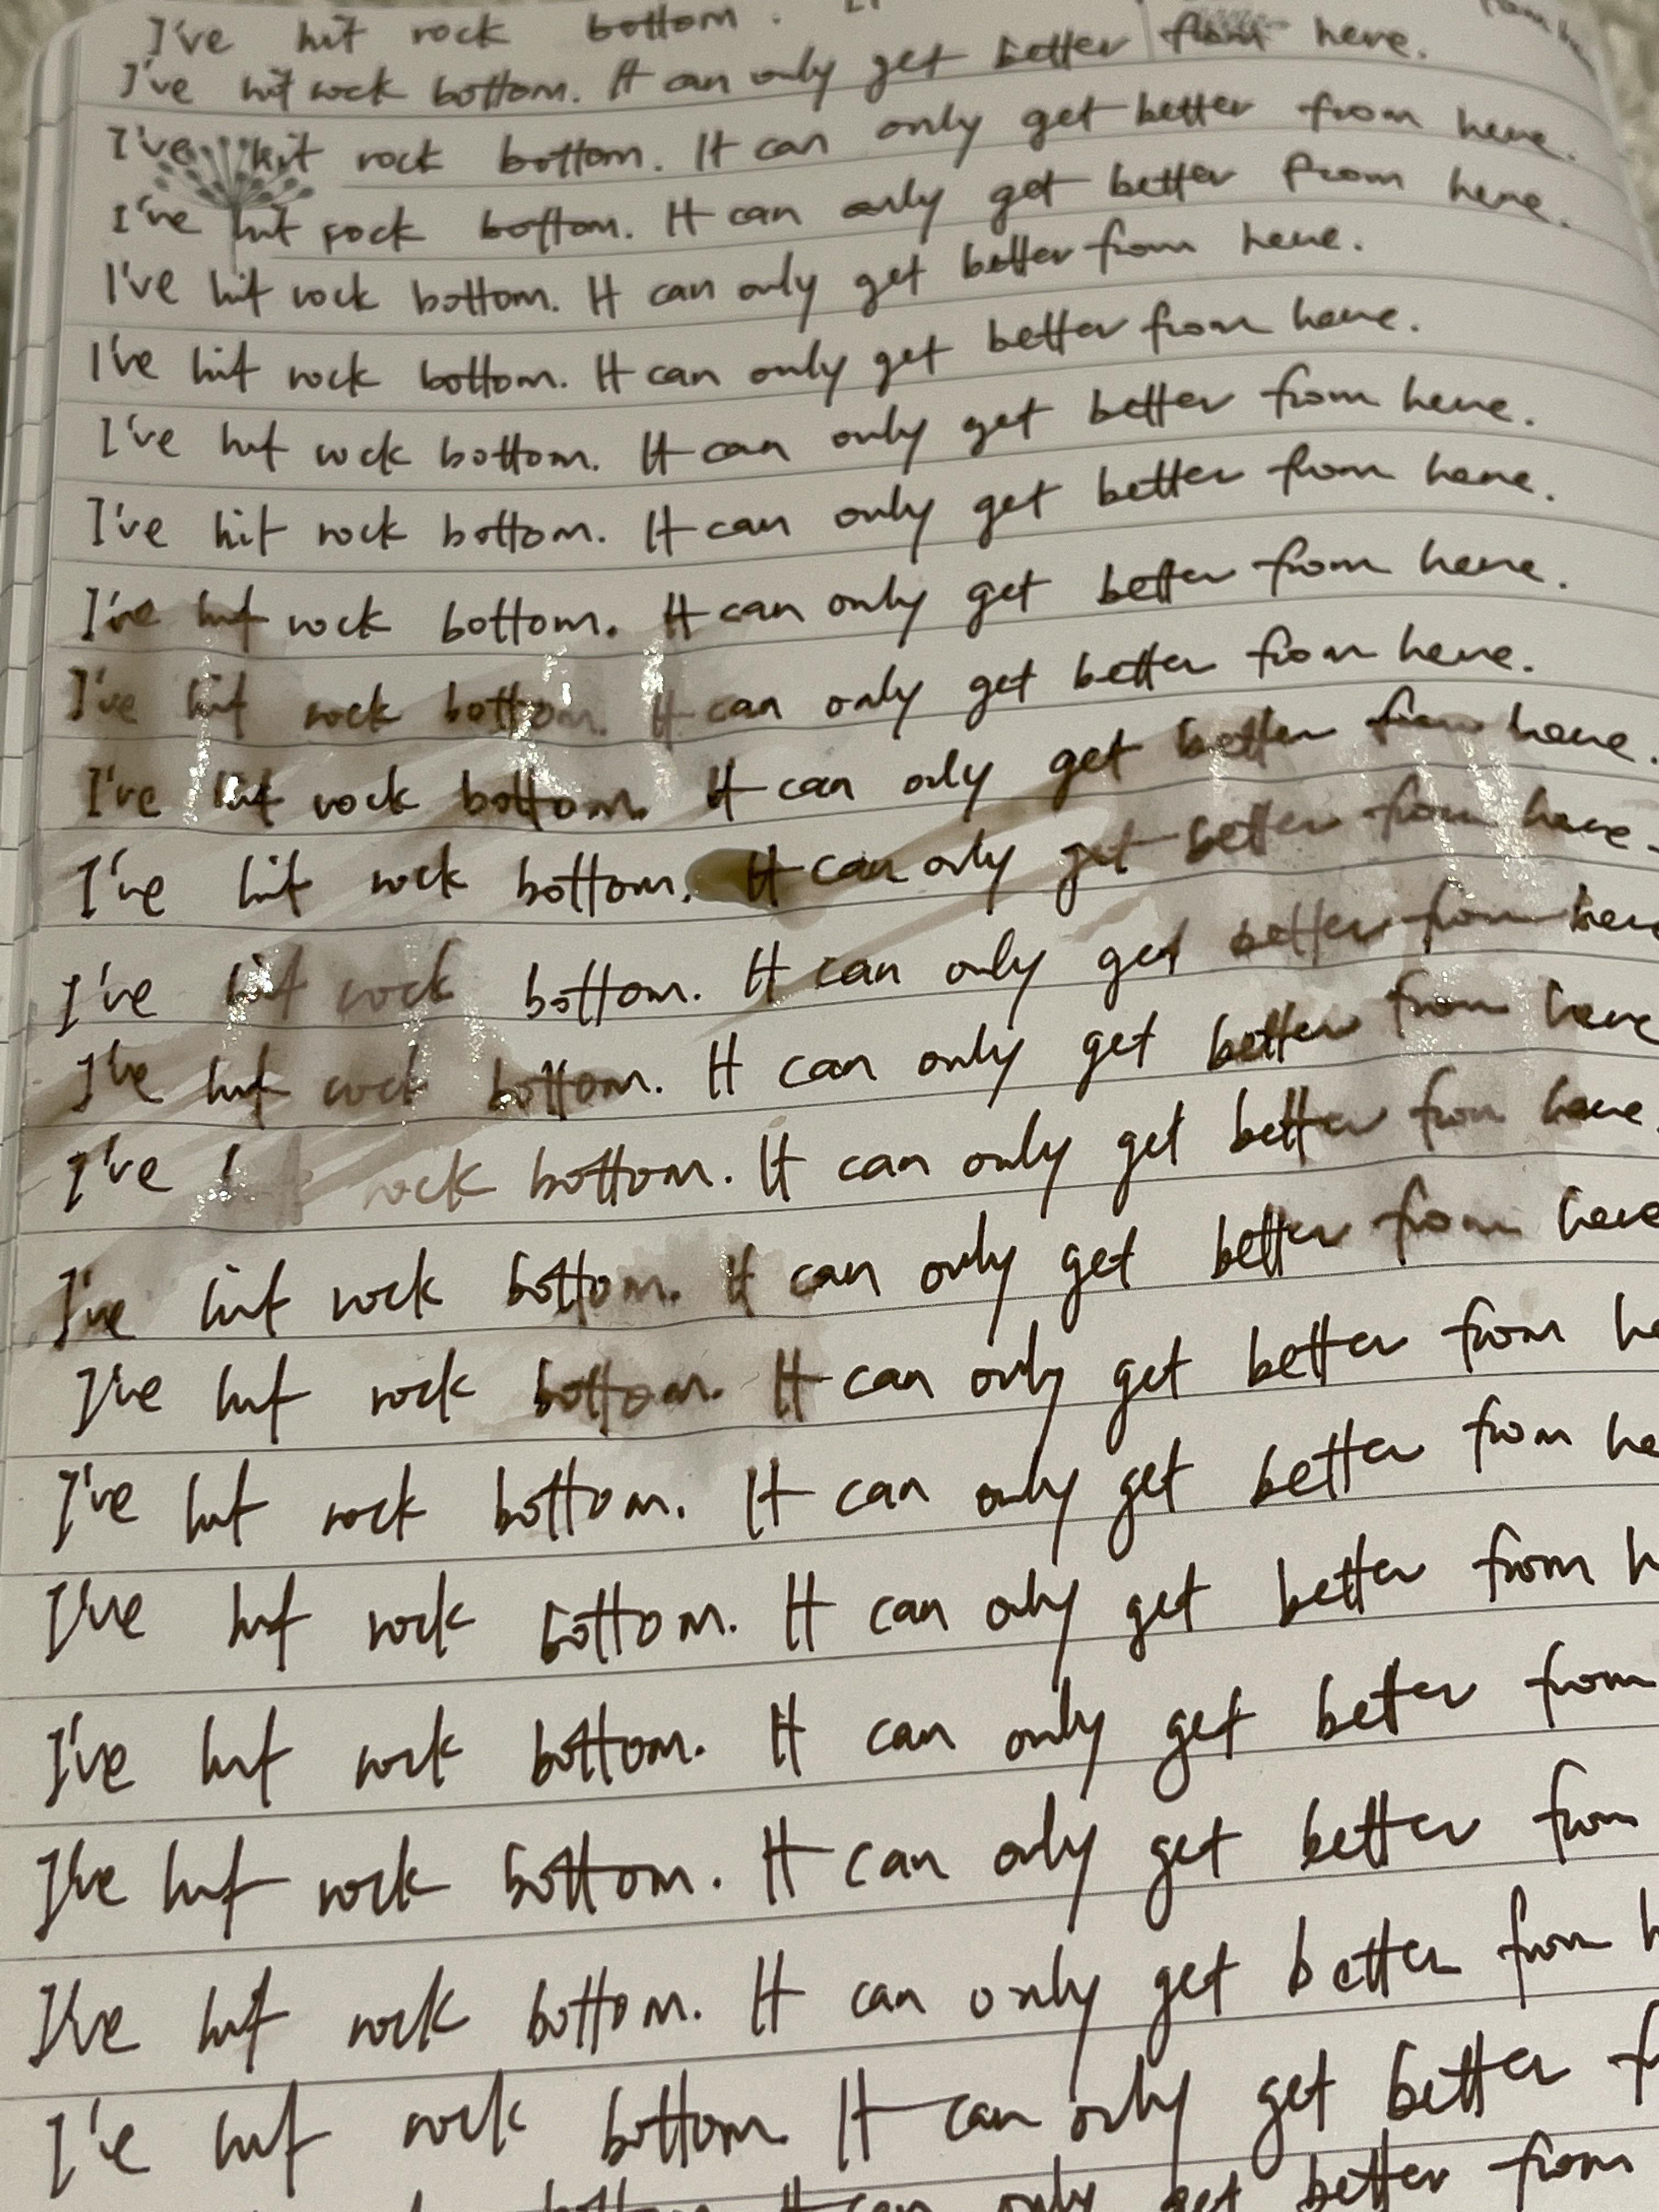 I've hit rock bottom.
I've hit rock bottom. It can only get better from here.
I've hit rock bottom. It can only get better from here.
I've hit rock bottom. It can only get better from here.
I've hit rock bottom. It can only get better from here.
I've hit rock bottom. It can only get better from here.
I've hit rock bottom. It can only get better from here.
I've hit rock bottom. It can only get better from here.
I've hit rock bottom. It can only get better from here.
I've hit rock bottom. It can only get better from here.
I've hit rock bottom. It can only get better from here.
I've hit rock bottom. It can only get better from here.
I've hit rock bottom. It can only get better from here
I've hit rock bottom. It can only get better from here
I've rock bottom. It can only get better from here.
I've hit rock bottom. It can only get better from here
I've hit rock bottom. It can only get better from he
I've hit rock bottom. It can only get better from he
I've hit rock bottom. It can only get better from h
I've hit rock bottom. It can only get better from
I've hit rock bottom. It can only get better from
I've hit rock bottom. It can only get better from h
I've hit rock bottom. It can only get better f
bottom It can only get better from